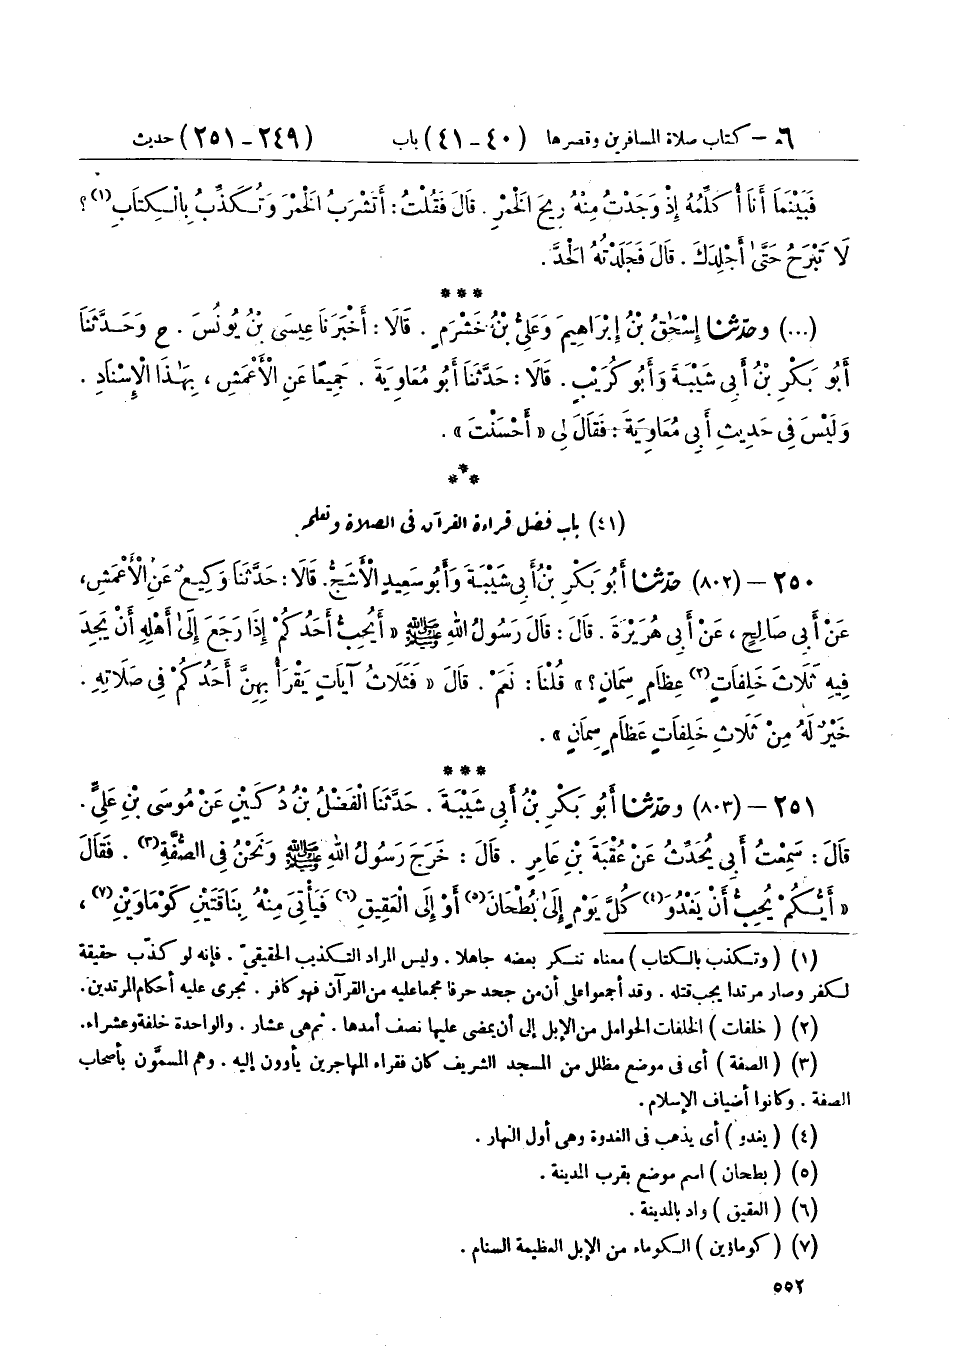 ٦ – كتاب صلاة المسافرين وقصرها (٤٠ - ٤١) باب (٢٤٩ - ٢٥١) حديث
فَبَيْنَمَا أَنَا أُكَلِّمُهُ إِذْ وَجَدْتُ مِنْهُ رِيحَ الْخَمْرِ . قَالَ فَقُلْتُ : أَتَشْرَبُ الْخَمْرَ وَتُكَذِّبُ بِالْكِتَابِ(١) ؟
لَا تَبْرَحُ حَتَّىٰ أَجْلِدَكَ . قَالَ فَجَلَدْتُهُ الْحَدَّ .
***
(...) وحَدَّثَنَا إِسْحَٰقُ بْنُ إِبْرَاهِيمَ وَعَلِيُّ بْنُ خَشْرَمٍ . قَالَا : أَخْبَرَنَا عِيسَى بْنُ يُونُسَ . ح وَحَدَّثَنَا
أَبُو بَكْرِ بْنُ أَبِي شَيْبَةَ وَأَبُو كُرَيْبٍ . قَالَا : حَدَّثَنَا أَبُو مُعَاوِيَةَ . جَمِيعًا عَنِ الْأَعْمَشِ ، بِهَٰذَا الْإِسْنَادِ .
وَلَيْسَ فِي حَدِيثِ أَبِي مُعَاوِيَةَ : فَقَالَ لِي « أَحْسَنْتَ » .
***
(٤١) باب فضل قراءة القرآن فى الصلاة وتعلمه
٢٥٠ – (٨٠٢) حَدَّثَنَا أَبُو بَكْرِ بْنُ أَبِي شَيْبَةَ وَأَبُو سَعِيدٍ الْأَشَجُّ. قَالَا : حَدَّثَنَا وَكِيعٌ عَنِ الْأَعْمَشِ،
عَنْ أَبِي صَالِحٍ ، عَنْ أَبِي هُرَيْرَةَ . قَالَ : قَالَ رَسُولُ اللهِ ﷺ « أَيُحِبُّ أَحَدُكُمْ إِذَا رَجَعَ إِلَىٰ أَهْلِهِ أَنْ يَجِدَ
فِيهِ ثَلَاثَ خَلِفَاتٍ(٢) عِظَامٍ سِمَانٍ ؟ » قُلْنَا : نَعَمْ . قَالَ « فَثَلَاثُ آيَاتٍ يَقْرَأُ بِهِنَّ أَحَدُكُمْ فِي صَلَاتِهِ .
خَيْرٌ لَهُ مِنْ ثَلَاثِ خَلِفَاتٍ عِظَامٍ سِمَانٍ » .
***
٢٥١ – (٨٠٣) وحَدَّثَنَا أَبُو بَكْرِ بْنُ أَبِي شَيْبَةَ . حَدَّثَنَا الْفَضْلُ بْنُ دُكَيْنٍ عَنْ مُوسَى بْنِ عُلَيٍّ .
قَالَ : سَمِعْتُ أَبِي يُحَدِّثُ عَنْ عُقْبَةَ بْنِ عَامِرٍ . قَالَ : خَرَجَ رَسُولُ اللهِ ﷺ وَنَحْنُ فِي الصُّفَّةِ(٣) . فَقَالَ
« أَيُّكُمْ يُحِبُّ أَنْ يَغْدُوَ(٤) كُلَّ يَوْمٍ إِلَىٰ بُطْحَانَ(٥) أَوْ إِلَى الْعَقِيقِ(٦) فَيَأْتِيَ مِنْهُ بِنَاقَتَيْنِ كَوْمَاوَيْنِ(٧) ،
(١) ( وتكذب بالكتاب ) معناه تنكر بعضه جاهلا . وليس المراد التكذيب الحقيقىّ . فإنه لو كذّب حقيقة
لكفر وصار مرتدا يجب قتله . وقد أجمعوا على أن من جحد حرفا مجمعا عليه من القرآن فهو كافر . تجرى عليه أحكام المرتدين.
(٢) ( خلفات ) الخلفات الحوامل من الإبل إلى أن يمضى عليها نصف أمدها . ثم هى عشار . والواحدة خلفة وعشراء.
(٣) ( الصفة ) أى فى موضع مظلل من المسجد الشريف كان فقراء المهاجرين يأوون إليه . وهم المسمَّون بأصحاب
الصفة . وكانوا أضياف الإسلام .
(٤) ( يغدو ) أى يذهب فى الغدوة وهى أول النهار .
(٥) ( بطحان ) اسم موضع بقرب المدينة .
(٦) ( العقيق ) واد بالمدينة .
(٧) ( كوماوين ) الكوماء من الإبل العظيمة السنام .
٥٥٢